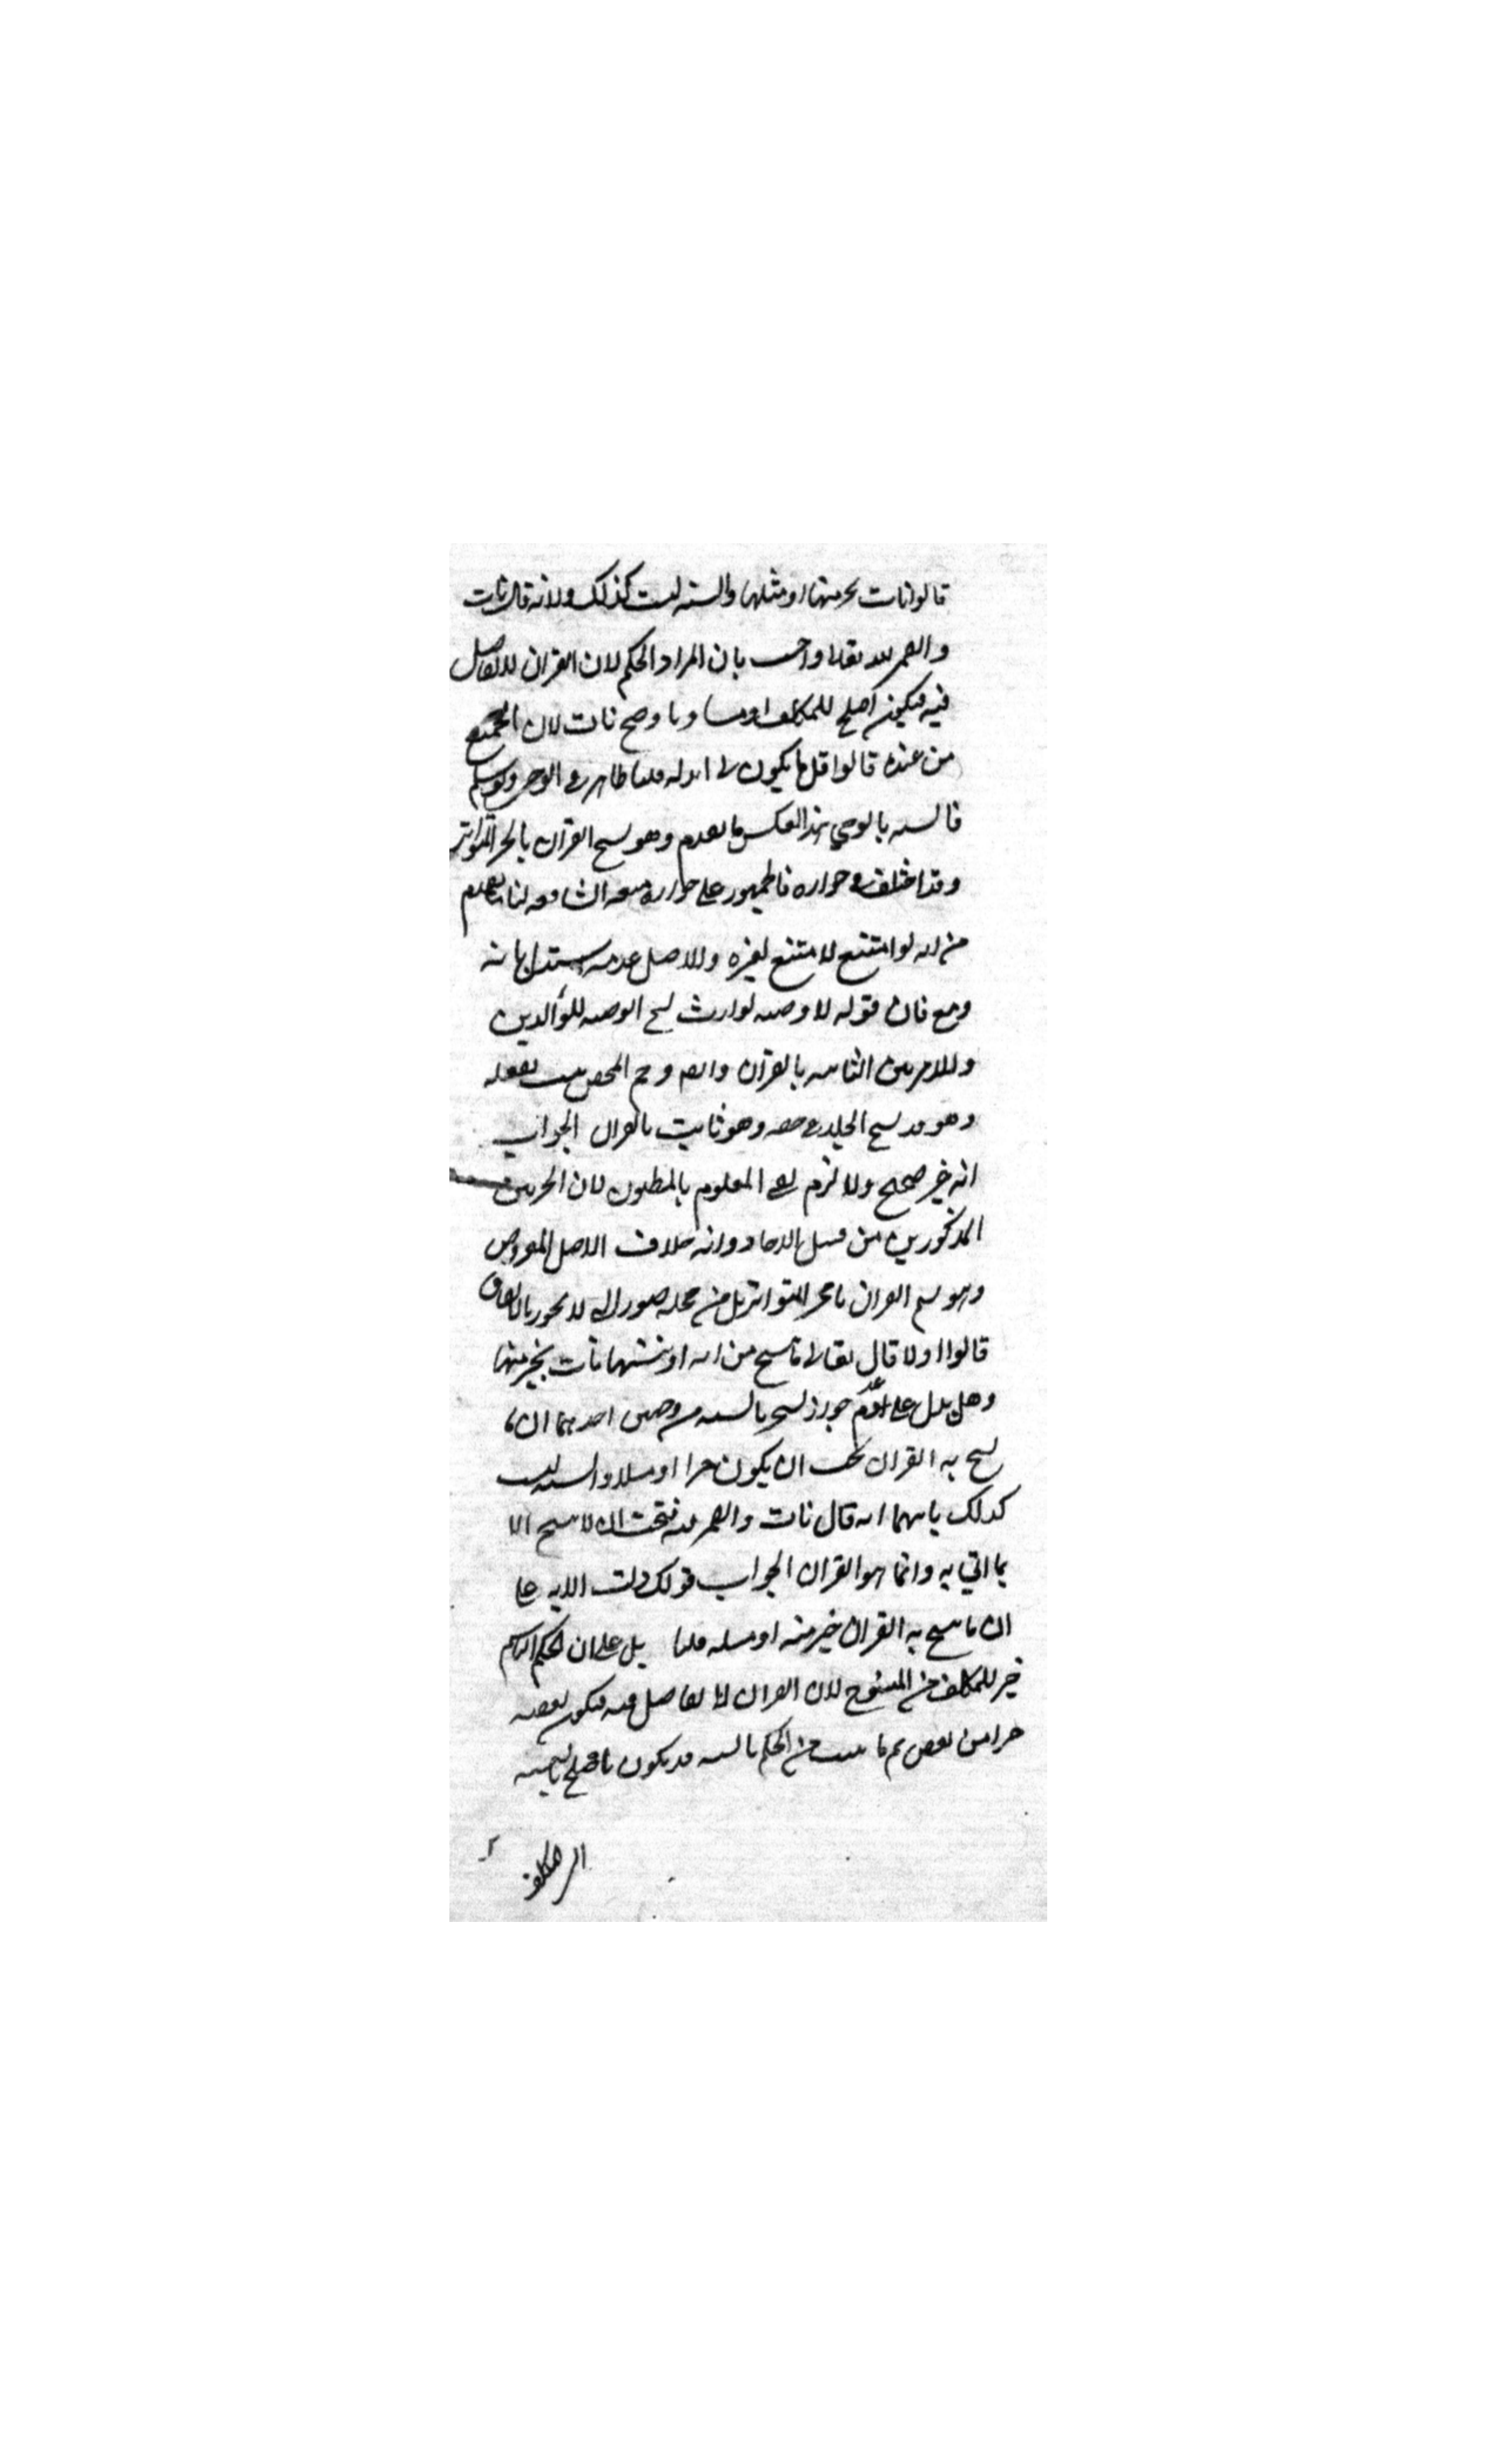 قالوا نات بخير منها او مثلها والسنه ليست كذلك ولانه قال نات
والضمير لله تعالى واجيب بان المراد الحكم لان القران لا تفاضل
فيه فيكون اصلح للمكلف او مساويا وصح نات لان الجميع
من عنده قالوا قل ما يكون لي ان ابدله قلنا ظاهر في الوحي ولو سلم
فالسنه بالوحي هذا العكس ما تقدم وهو نسخ القران بالخبر المتواتر
وقد اختلف في جوازه فالجمهور على جوازه منعه الشافعي لنا ما تقدم
من انه لو امتنع لامتنع لغيره والاصل عدمه استدل بانه
وقع فان قوله لا وصيه لوارث نسخ الوصيه للوالدين
والاقربين الثابته بالقران وايضا رجم المحصن ثبت بفعله
وهو قد نسخ الجلد في حقه وهو ثابت بالقران الجواب
انه غير صحيح ولا لزم نسخ المعلوم بالمظنون لان الخبرين
المذكورين من قبيل الاحاد وانه خلاف الاصل المفروض
وهو نسخ القران بالخبر المتواتر بل من محله صوره التي لا يجوز بالاتفاق
قالوا اولا قال تعالى ما ننسخ من ايه او ننسها نات بخير منها
وهل يدل على عدم جواز نسخ بالسنه من وجهين احدهما ان ما
نسخ به القران يجب ان يكون خيرا او مثلا والسنه ليست
كذلك ثانيهما انه قال نات والضمير لله فيجب ان لا ينسخ الا
بما اتى به وانما هو القران الجواب قولك دلت الايه على
ان ما نسخ به القران خير منه او مثله قلنا بل على ان الحكم الناسخ
خير للمكلف من المنسوخ لان القران لا تفاضل فيه فيكون بعضه
خيرا من بعض ثم ما ثبت من الحكم بالسنه قد يكون اصلح بالنسبه
الى المكلف